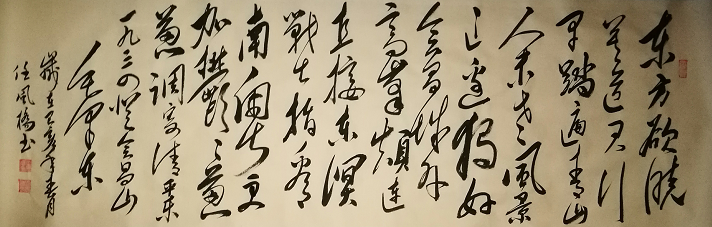 东方欲晓
莫道君行
早踏遍青山
人未老风景
这边独好
会昌城外
高峰颠连
直接东溟
战士指看
南粤更
加鬱々葱
葱调寄清平乐
一九三四登会昌山
毛泽东
岁在己亥年五月
任风桥书